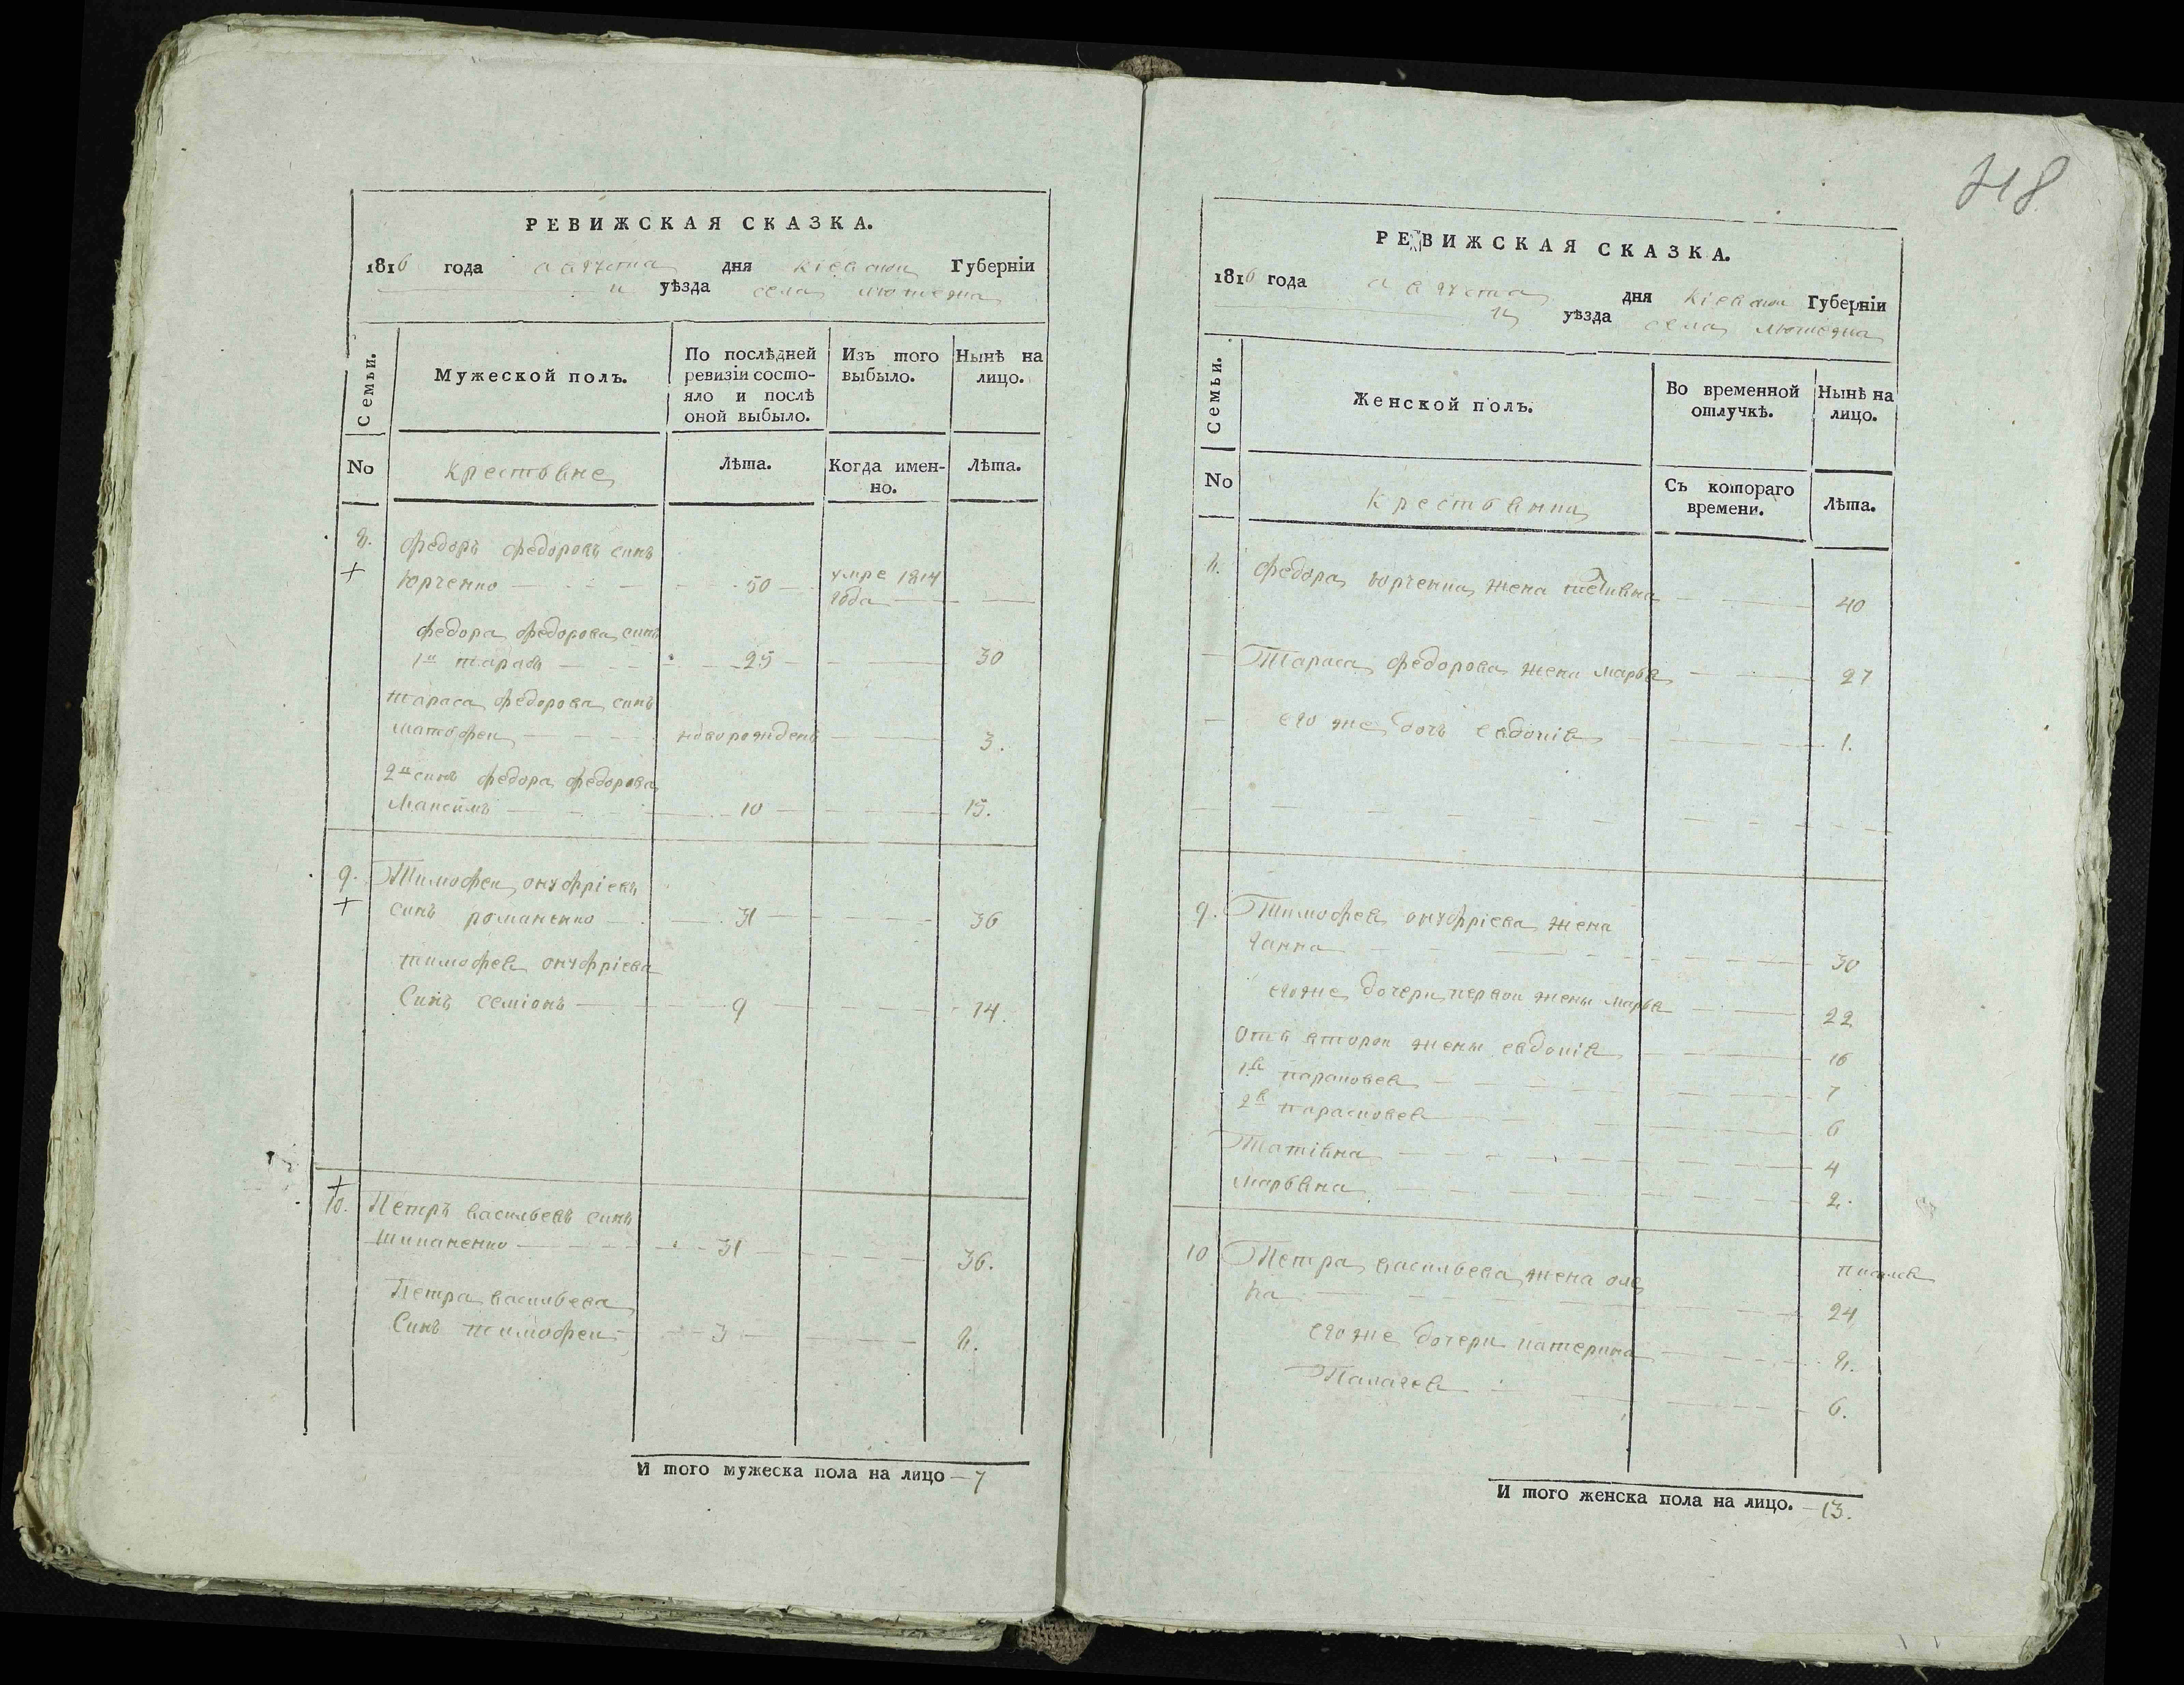 718
РЕВИЖСКАЯ СКАЗКА.
1816 года августа дня Кіевской Губерніи
уѣзда села
Семьи.
Мужеской полъ.
По послѣдней ревизіи состо-
яло и послѣ оной выбыло.
Изъ того выбыло.
Нынѣ на лицо.
No
крестьяне
Лѣта.
Когда имен-
но.
Лѣта.
8. федоръ федоровъ синъ
Юрченко — 50 — умре 1814
года —
федора федорова синъ
1й тарасъ — 25 — 30
тараса федорова синъ
матофеи — новорожденъ — 3.
2й синъ федора федорова
Максимъ — 10 — 15.
9. Тимофеи онуфріевъ
синъ романенко — 31 — 36
тимофея онуфріева
Синъ семіонъ — 9 — 14.
10. Петръ васильевъ синъ
— 31 — 36.
Петра васильева
Синъ тимофеи — 3 — 8.
И того мужеска пола на лицо — 7
РЕВИЖСКАЯ СКАЗКА.
1816 года августа дня Кіевской Губерніи
уѣзда села
Семьи.
Женской полъ.
Во временной отлучкѣ.
Нынѣ на лицо.
No
Крестьянки
Съ котораго времени.
Лѣта.
8. федора юрченка жена — 40
Тараса федорова жена марья — 27
его же дочь евдокія — 1.
9. Тимофея онуфріева жена
ганна — 30
егоже дочери первои жены марья — 22
Отъ второи жены евдокія — 16
1я парасковея — 7
2я парасковея — 6
Татіяна — 4
марьяна — 2.
10 Петра васильева жена оле
на — 24
егоже дочери катерина — 8.
Палагея — 6.
И того женска пола на лицо. — 13.